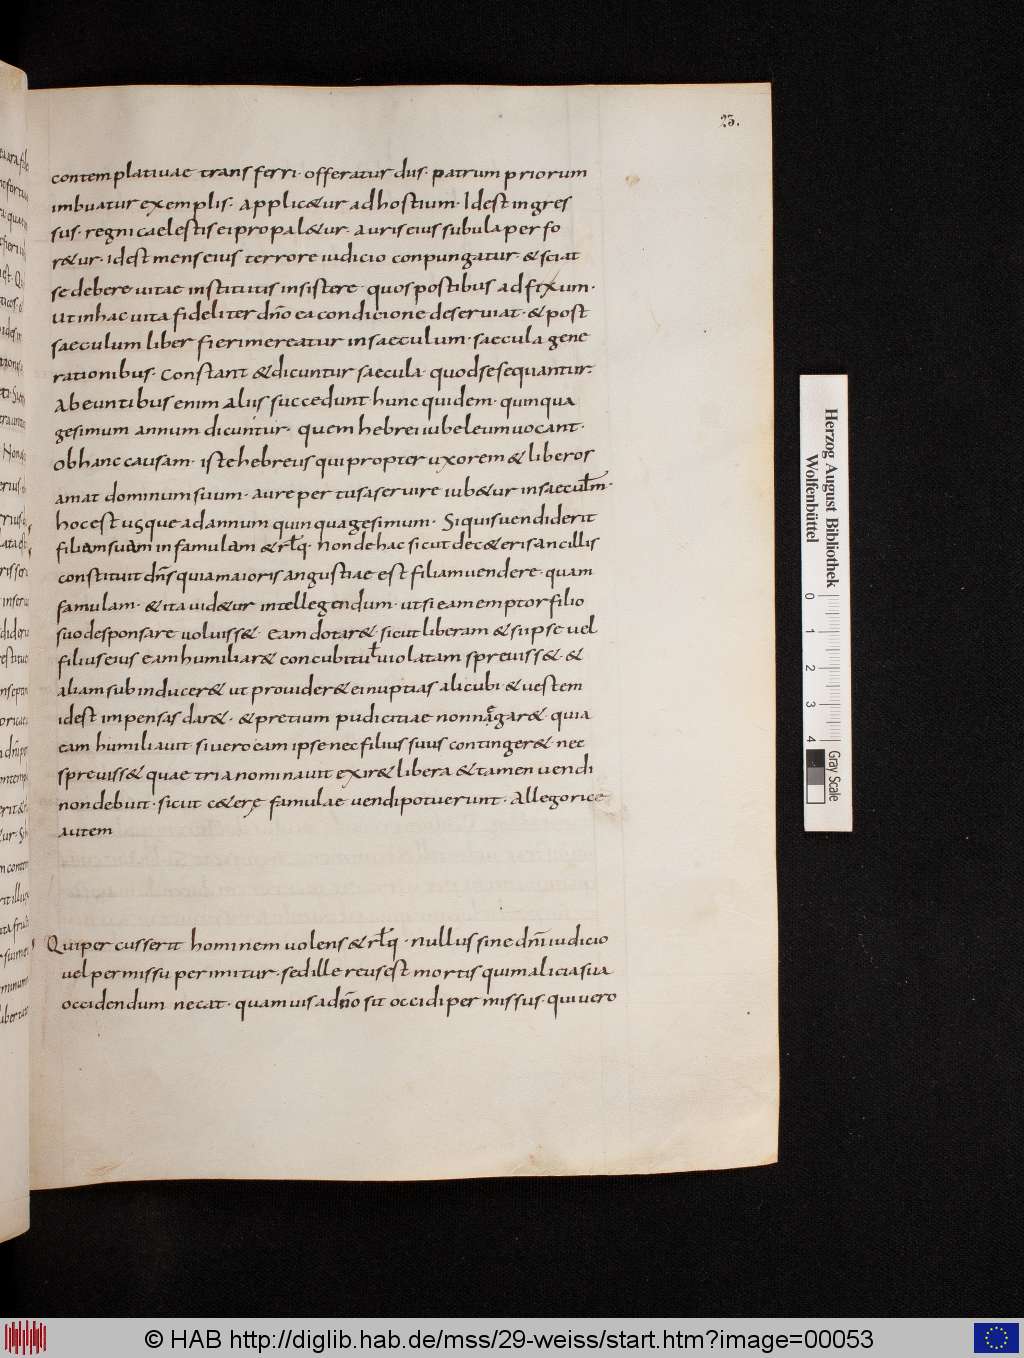 23.
contemplativae transferri· offeratur diis· patrum priorum
imbuatur exemplis· applic&ur ad hostium· Idest ingres
sus· regni caelestis ei propal&ur· auris eius subula perfo
r&ur· Idest mens eius terrore iudicio conpungatur· & sciat
se debere vitae institutis insistere· quos postibus adfixum·
Ut in hac vita fideliter dn̄o ea condicione deserviat· & post
saeculum liber fieri mereatur in saeculum· saecula gene
rationibus· constant & dicuntur saecula· quod se sequantur·
Abeuntibus enim aliis succedunt hunc quidem· quinqua
gesimum annum dicuntur· quem hebrei iubeleum vocant·
Ob hanc causam· iste hebreus qui propter uxorem & liberos
amat dominum suum· aure pertusa servire iub&ur in saecul̄m·
hoc est usque ad annum quinquagesimum· Si quis vendiderit
filiam suam in famulam & rl̄q· Non de hac sicut de c&eris ancillis
constituit dn̄s quia maioris angustiae est filiam vendere· quam
famulam· & ita vid&ur intellegendum· ut si eam emptor filio
suo desponsare voluiss&· eam dotar& sicut liberam & si ipse vel
filius eius eam humiliar& concubitu l̄ violatam spreviss&· &
aliam subinducer& ut provider& ei nuptias alicubi & vestem
idest impensas dar&· & pretium pudicitiae non negar&· quia
eam humiliavit si vero eam ipse nec filius suus continger& nec
spreviss& quae tria nominavit exir& libera & tamen vendi
non debuit· sicut c&erę famulae vendi potuerunt· Allegorice
autem
Qui percusserit hominem volens & rl̄q· Nullus sine dn̄i iudicio
vel permissu perimitur· sed ille reus est mortis qui malicia sua
occidendum necat· quamvis a dn̄o sit occidi permissus· qui vero
Herzog August Bibliothek
Wolfenbüttel
0 1 2 3 4
Gray Scale
© HAB http://diglib.hab.de/mss/29-weiss/start.htm?image=00053